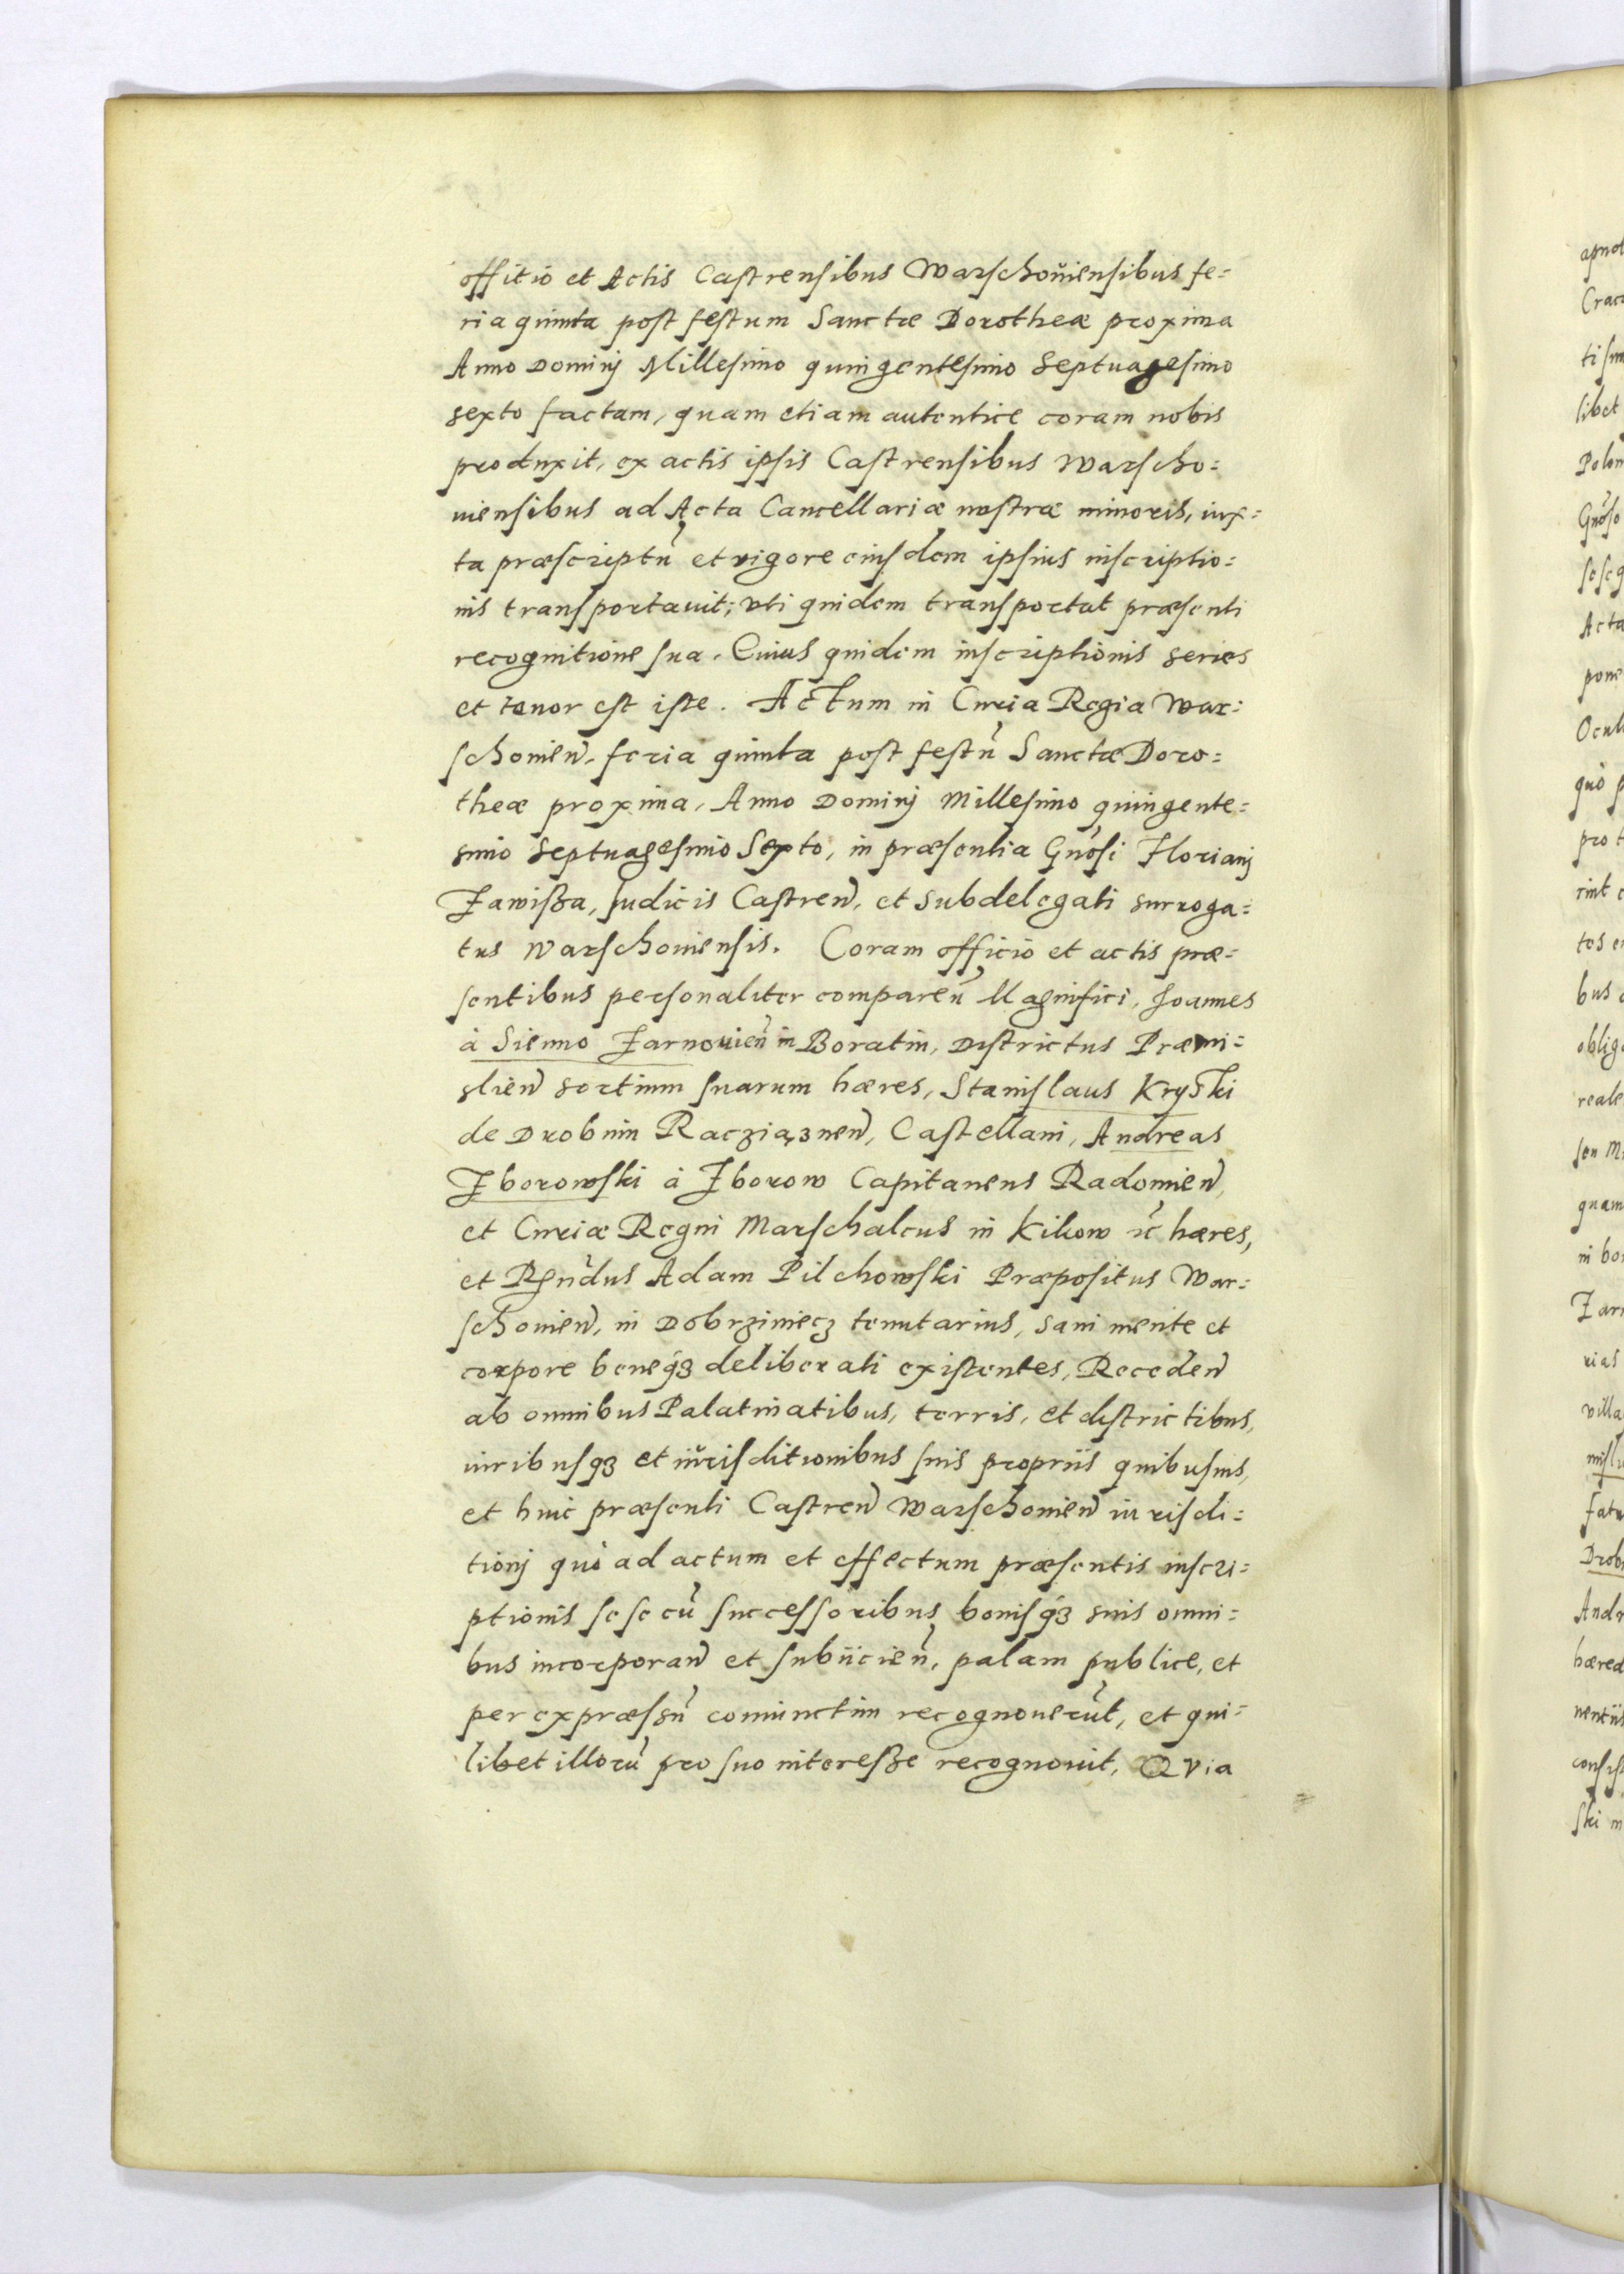 offitio et Actis Castrensibus Warschoŭiensibus fe=
ria quinta post festum Sanctæ Dorotheæ proxima
Anno Dominj Millesimo quingentesimo Septuagesimo
sexto factam, quam etiam autentice coram nobis
produxit, ex actis ipsis Castrensibus Warscho=
uiensibus ad Acta Cancellariæ nostræ minoris, iux=
ta præscriptū et vigore eiusdem ipsius inscriptio=
nis transportauit; vti quidem transportat præsenti
recognitione sua. Cuius quidem inscriptionis series
et tenor est iste. Actum in Curia Regia War=
schouien̄. feria quinta post festū Sanctæ Doro=
theæ proxima, Anno Dominj Millesimo quingente=
simo Septuagesimo Sexto, in præsentia Gn̄osi Florianj
Zawißa, Iudicis Castren̄, et Subdelegati surroga=
tus Warschouiensis. Coram officio et actis præ=
sentibus personaliter comparen̄ Magnifici, Joannes
à Sienno Zarnouien̄ in Boratin, Districtus Præmi=
slien̄ sortium suarum hæres, Stanislaus Kryski
de Drobnin Racziąznen̄, Castellani, Andreas
Zborowski à Zborow Capitaneus Radomien̄,
et Curiæ Regni Marschalcus in Kikow ꝛc̄ hæres,
et Rn̄dus Adam Pilchowski Præpositus War=
schouien̄, in Dobrziniecz tenutarius, sani mente et
corpore beneqꝫ deliberati existentes, Receden̄
ab omnibus Palatinatibus, terris, et districtibus,
iuribusqꝫ et iŭrisditionibus suis propriis quibusuis,
et huic præsenti Castren̄ Warschouien̄ iurisdi=
tionj quò ad actum et effectum præsentis inscri=
ptionis sese cū successoribus bonisqꝫ suis omni=
bus incorporan̄ et subiicien̄, palam publice, et
per expræssū coniunctim recognouerūt, et qui=
libet illorū pro suo intereße recognouit, Qvia